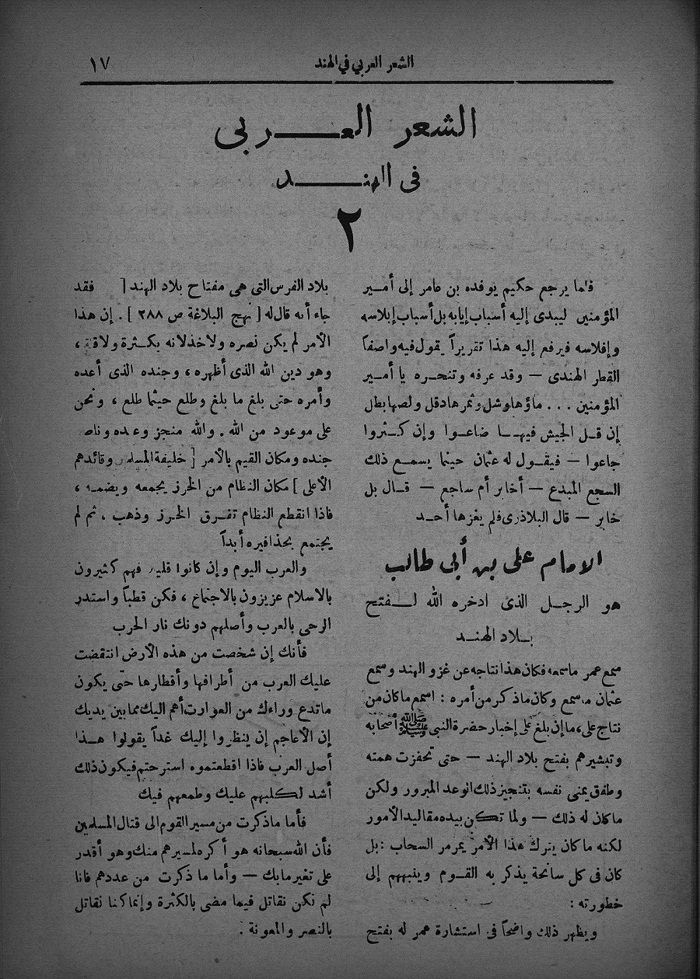 الشعر العربي في الهند ١٧
الشعر العربى
فى الهند
٢
فما يرجع حكيم يوفده بن عامر إلى أمير
المؤمنين ليبدى إليه أسباب إيابه بل أسباب إبلاسه
وإفلاسه فيرفع إليه هذا تقريراً يقول فيه واصفاً
القطر الهندى — وقد عرفه وتنحره يا أمير
المؤمنين ... ماؤها وشل وثمرها دقل ولصها بطل
إن قل الجيش فيها ضاعوا وإن كثروا
جاعوا — فيقول له عثمان حينما يسمع ذلك
السجع المبدع — أخابر أم ساجع — قال بل
خابر — قال البلاذرى فلم يغزها أحد
الامام على بن أبى طالب
هو الرجل الذى ادخره الله لفتح
بلاد الهند
سمع عمر ماسمعه فكان هذا نتاجه عن غزو الهند وسمع
عثمان ماسمع وكان ماذكر من أمره : اسمع ما كان من
نتاج على، ما إن بلغ على إخبار حضرة النبى ﷺ أصحابه
وتبشيرهم بفتح بلاد الهند — حتى تحفزت همته
وطفق يمنى نفسه بتنجيز ذلك الوعد المبرور ولكن
ما كان له ذلك — ولما تكن بيده مقاليد الأمور
لكنه ما كان يترك هذا الأمر يمر مر السحاب : بل
كان فى كل سانحة يذكر به القوم وينبههم إلى
خطورته :
ويظهر ذلك واضحاً فى استشارة عمر له بفتح
بلاد الفرس التى هى مفتاح بلاد الهند [ فقد
جاء أنه قال له [ نهج البلاغة ص ٢٨٨ ] . إن هذا
الأمر لم يكن نصره ولا خذلانه بكثرة ولا قلة ،
وهو دين الله الذى أظهره ، وجنده الذى أعده
وأمره حتى بلغ ما بلغ وطلع حيثما طلع ، ونحن
على موعود من الله . والله منجز وعده وناصر
جنده ومكان القيم بالأمر [ خليفة المسلمين وقائدهم
الأعلى ] مكان النظام من الخرز يجمعه ويضمه ،
فاذا انقطع النظام تفرق الخرز وذهب . ثم لم
يجتمع بحذافيره أبداً
والعرب اليوم وإن كانوا قليلا فهم كثيرون
بالاسلام عزيزون بالاجتماع ، فكن قطباً واستدر
الرحى بالعرب وأصلهم دونك نار الحرب
فأنك إن شخصت من هذه الأرض انتقضت
عليك العرب من أطرافها وأقطارها حتى يكون
ماتدع وراءك من العورات أهم اليك مما بين يديك
إن الأعاجم إن ينظروا إليك غداً يقولوا هذا
أصل العرب فاذا اقطعتموه استرحتم فيكون ذلك
أشد لكلبهم عليك وطمعهم فيك
فأما ماذكرت من مسير القوم الى قتال المسلمين
فأن الله سبحانه هو أكره لمسيرهم منك وهو أقدر
على تغير ما بك — وأما ما ذكرت من عددهم فانا
لم نكن نقاتل فيما مضى بالكثرة وإنما كنا نقاتل
بالنصر والمعونة .